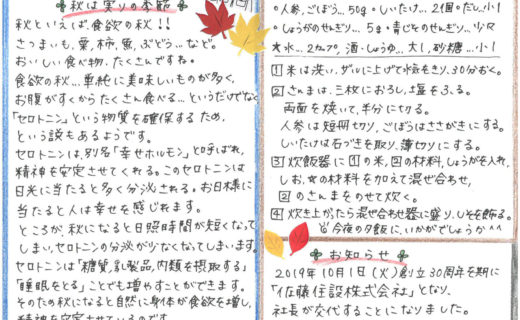 秋は実りの季節
秋といえば、食欲の秋!!
さつまいも、栗、柿、魚、ぶどう…など。
おいしい食べ物、たくさんですね。
食欲の秋…単純に美味しいものが多く、
お腹がすくからたくさん食べる…というだけでなく
「セロトニン」という物質を確保するため、
という説もあるようです。
セロトニンは、別名「幸せホルモン」と呼ばれ、
精神を安定させてくれる。このセロトニンは
日光に当たると多く分泌される。お日様に
当たると人は幸せを感じれます。
ところが、秋になると日照時間が短くなって
しまい、セロトニンの分泌が少なくなってしまいます。
セロトニンは「糖質、乳製品、肉類を摂取する」
「睡眠をとる」ことでも増やすことができます。
そのため秋になると自然に身体が食欲を増し、
精神を安定させているのです。
・人参、ごぼう…50g ・しいたけ…2個 ・だし…小1
・しょうがのせんぎり…5g ・青じそのせんぎり…少々
★水…2カップ、酒・しょうゆ…大1、砂糖…小1
1 米は洗い、ザルに上げて水気をきり、30分おく。
2 さんまは、三枚におろし、塩をふる。
両面を焼いて、半分に切る。
人参は短冊切り、ごぼうはささがきにする。
しいたけは石づきを取り、薄切りにする。
3 炊飯器に1の米、2の材料、しょうがを入れ、
しお、★の材料を加えて混ぜ合わせ、
2のさんまをのせて炊く。
4 炊き上がったら混ぜ合わせ器に盛り、しそを飾る。
今夜の夕飯に、いかがでしょうか^^
お知らせ
2019年10月1日(火)創立30周年を期に
「佐藤住設株式会社」となり、
社長が交代することになりました。